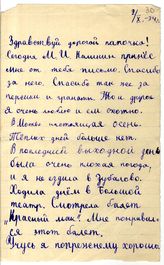 9/X.-34г.
Здравствуй дорогой папочка!
Сегодня М. И. Калинин привёз
мне от тебя письмо. Спасибо
за него. Спасибо так же за
персики и гранаты. То и другое
я очень люблю и ем охотно.
В Москве настоящая осень.
Тёплых дней больше нет.
В последний выходной день
была очень плохая погода,
и я не ездила в Зубалово.
Ходила днём в большой
театр. Смотрела балет
"Красный мак". Мне понравил-
ся этот балет.
Учусь я попрежнему хорошо.